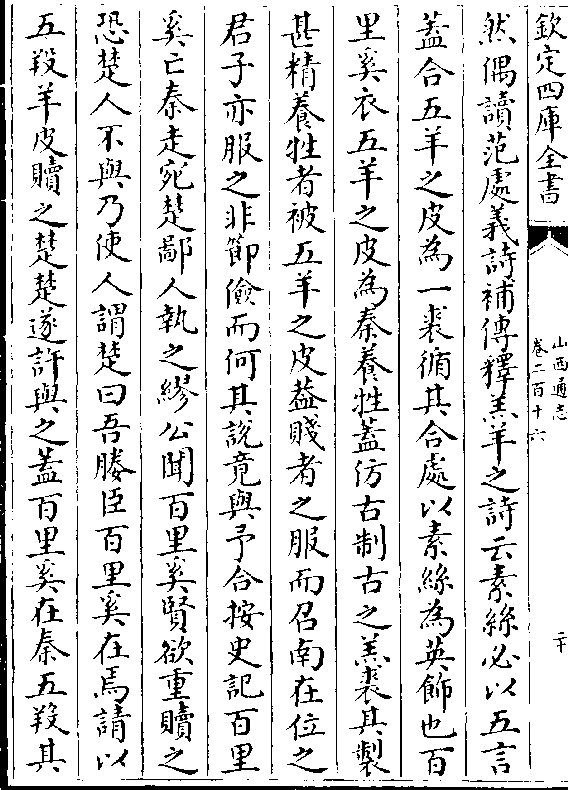 欽定四庫全書
山西通志
卷二百十六
二十
然偶讀范處義詩補傳釋羔羊之詩云素絲必以五言
蓋合五羊之皮為一裘循其合處以素絲為英飾也百
里奚衣五羊之皮為秦養牲蓋仿古制古之羔裘其製
甚精養牲者被五羊之皮葢賤者之服而召南在位之
君子亦服之非節儉而何其說竟與予合按史記百里
奚亡秦走宛楚鄙人執之繆公聞百里奚賢欲重贖之
恐楚人不與乃使人謂楚曰吾媵臣百里奚在焉請以
五羖羊皮贖之楚楚遂許與之蓋百里奚在秦五羖其